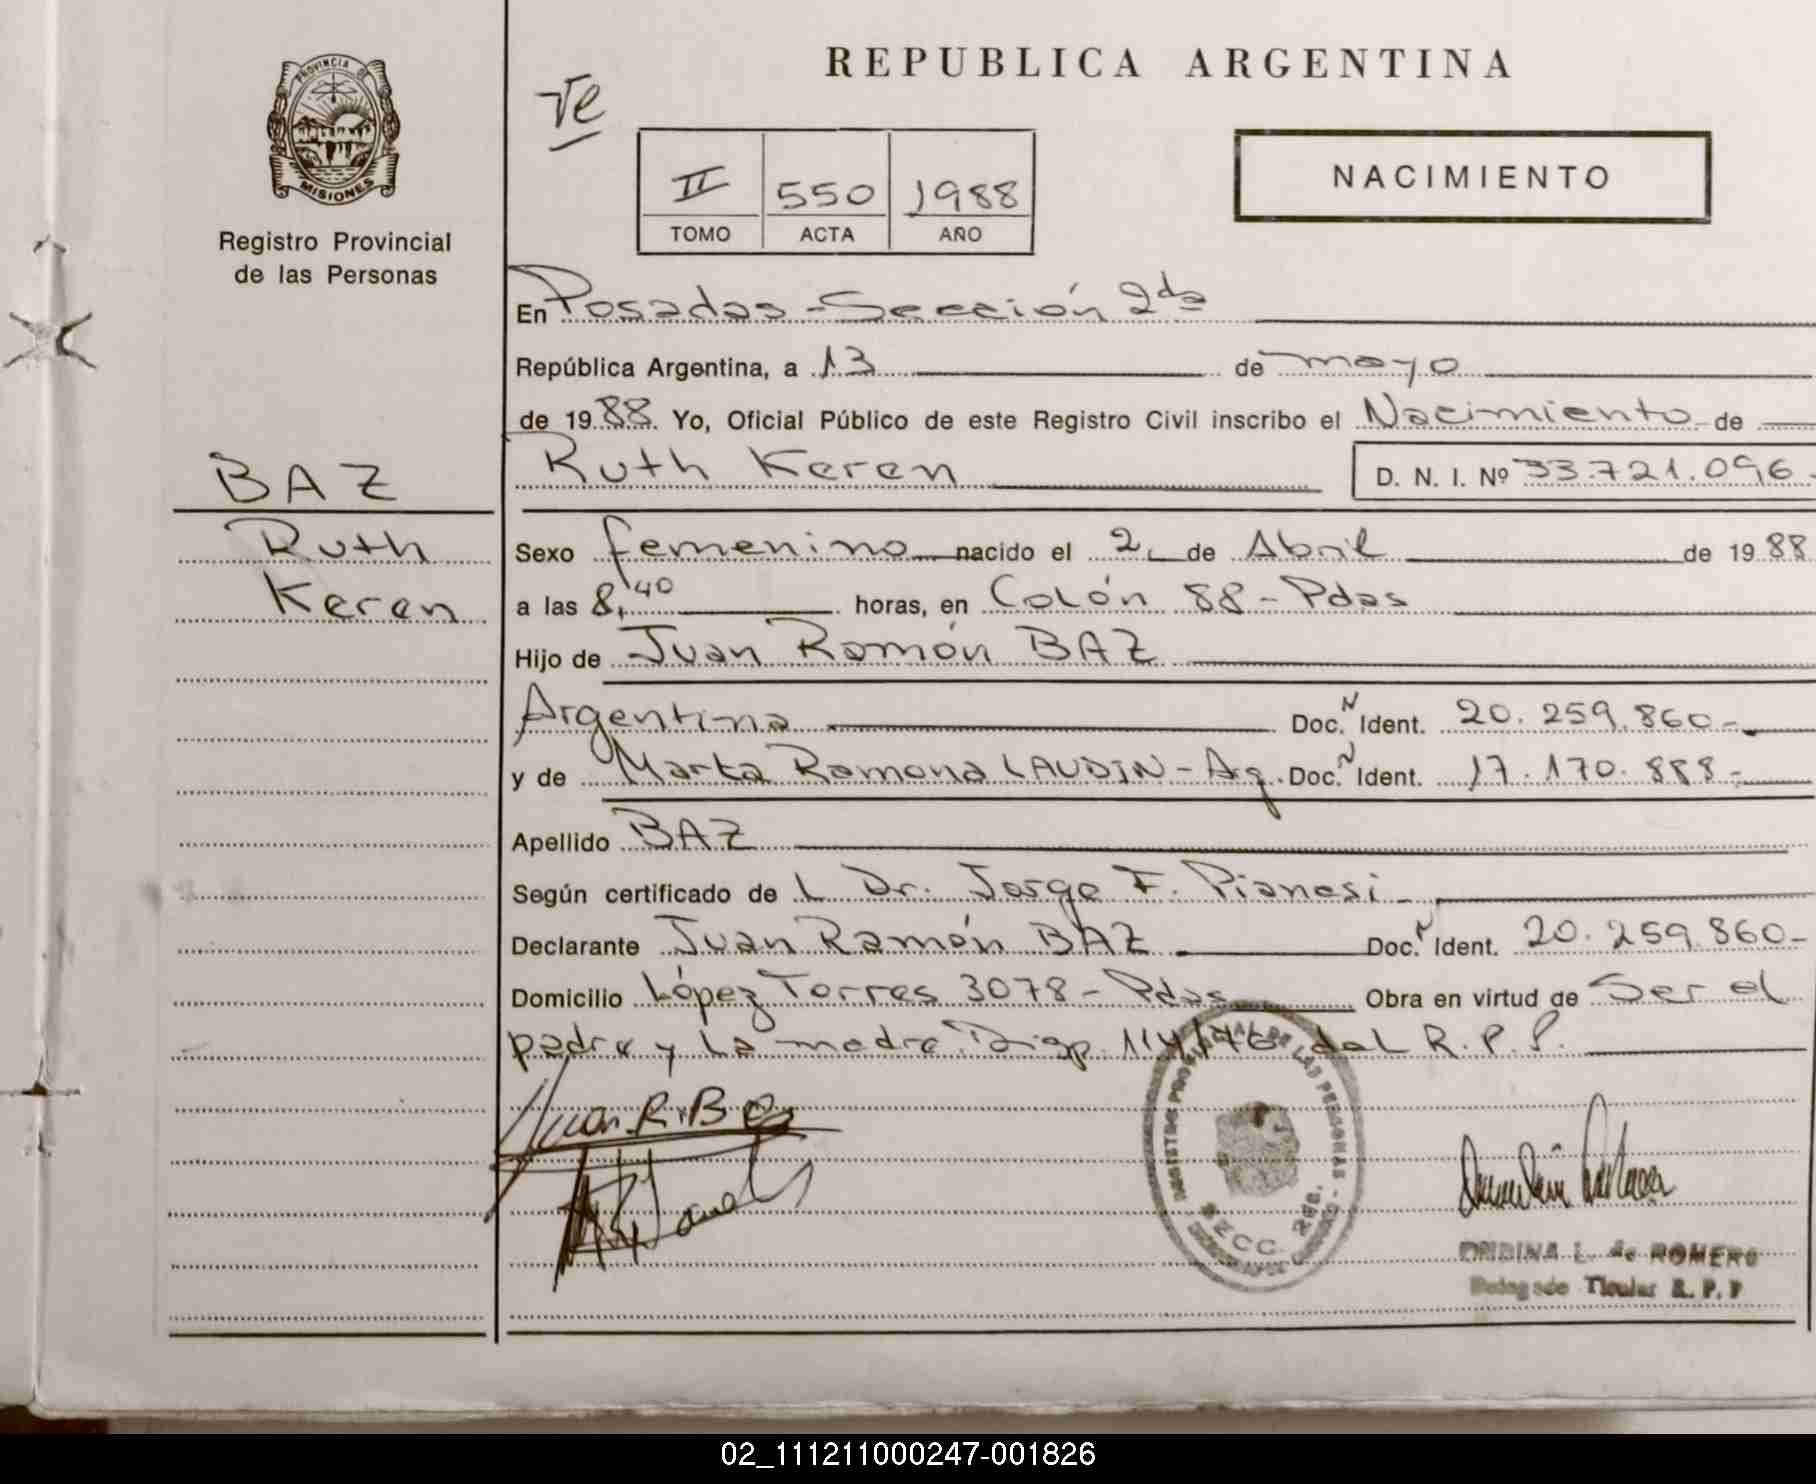 PROVINCIA DE
MISIONES
Registro Provincial
de las Personas
BAZ
Ruth
Keren
REPUBLICA ARGENTINA
NACIMIENTO
II 550 1988
TOMO ACTA AÑO
En Posadas - Sección 2da
República Argentina, a 13 de mayo
de 1988 Yo, Oficial Público de este Registro Civil inscribo el Nacimiento de
Ruth Keren D. N. I. Nº 33.721.096-
Sexo femenino nacido el 2 de Abril de 1988
a las 8,40 horas, en Colón 88 - Pdas
Hijo de Juan Ramón BAZ
Argentina Doc. N Ident. 20.259.860-
y de Marta Ramona LAUDIN - Arg. Doc. N Ident. 17.170.888-
Apellido BAZ
Según certificado de L Dr. Jorge F. Pianesi
Declarante Juan Ramón BAZ Doc. N Ident. 20.259.860-
Domicilio López Torres 3078 - Pdas Obra en virtud de Ser el
padre y la madre. Disp. 114/76 del R.P.P.
Juan R. Baz
SECC. 2da.
L. de ROMERO
Titular R. P. P
02_111211000247-001826